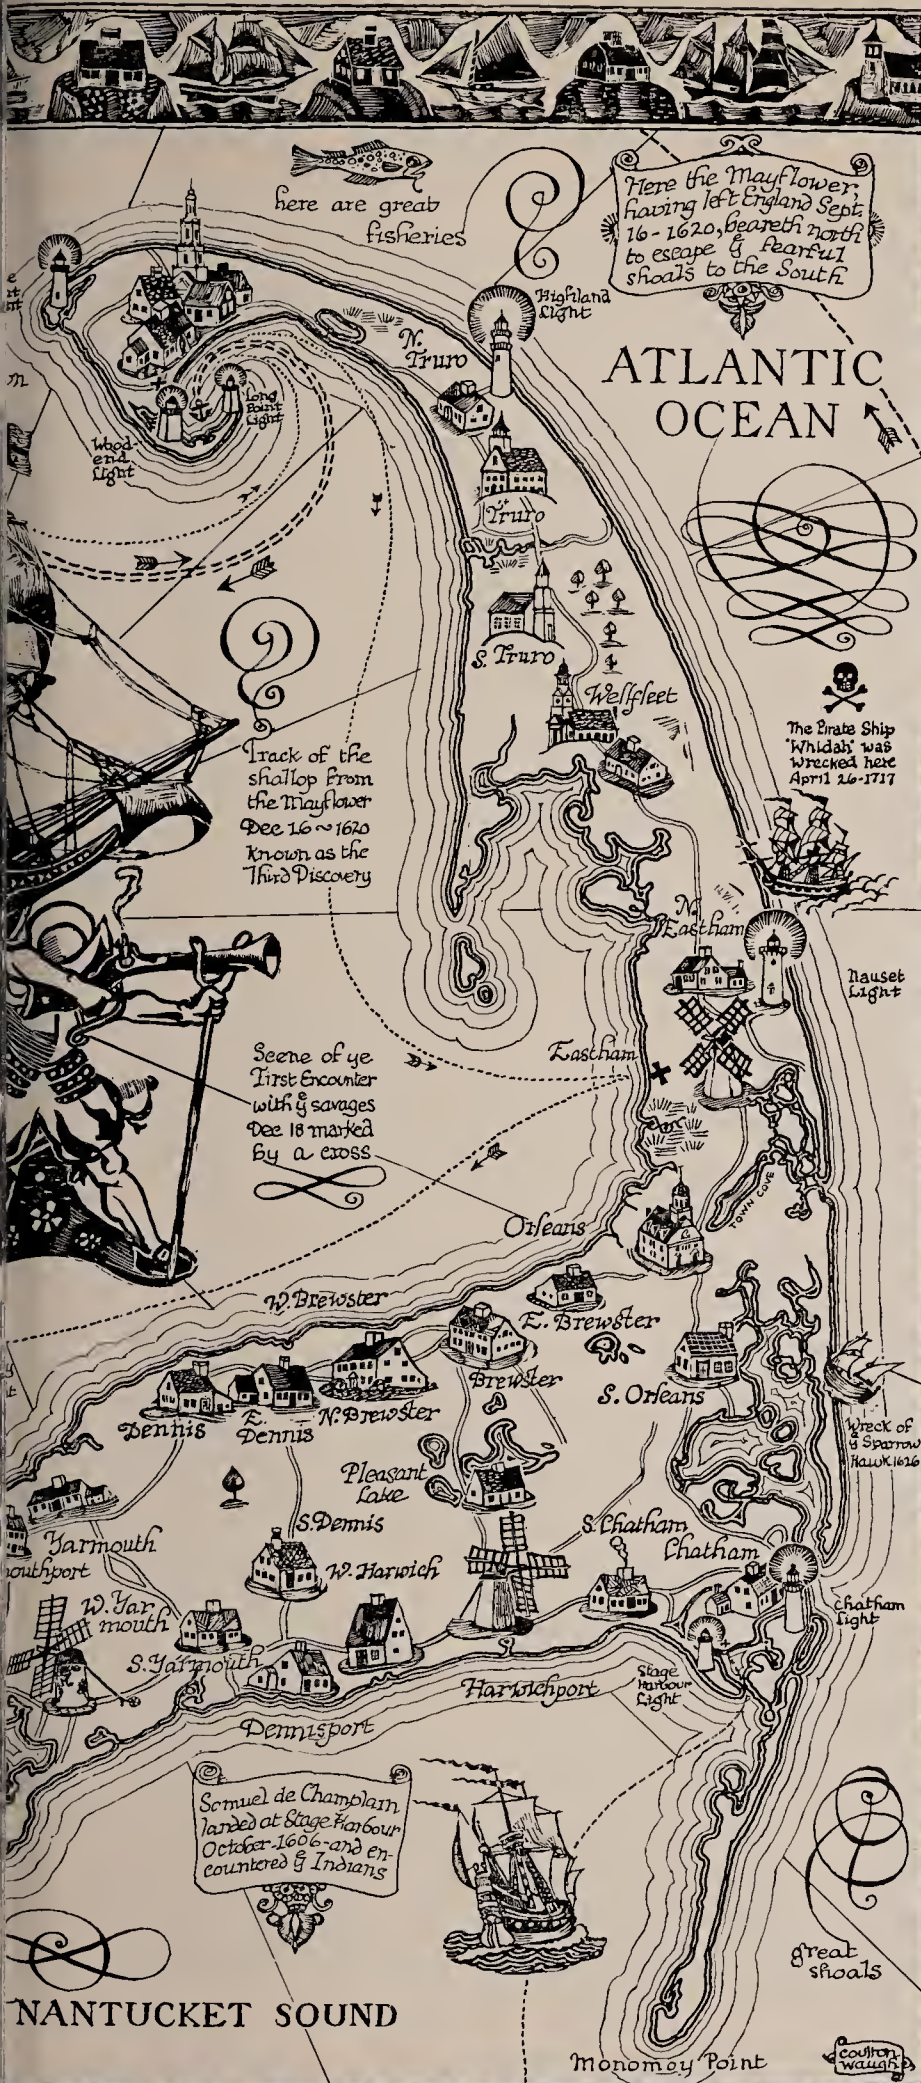 here are great
fisheries
Here the Mayflower,
having left England Sept.
16-1620, beareth north
to escape ye fearful
shoals to the South
Highland
Light
N.
Truro
ATLANTIC
OCEAN
Long
Point
Light
Wood-
end
Light
Truro
S. Truro
Wellfleet
The Pirate Ship
"Whidah" was
wrecked here
April 26-1717
Track of the
shallop from
the Mayflower
Dec 16~1620
known as the
Third Discovery
N.
Eastham
Nauset
Light
Eastham
Scene of ye
First Encounter
with ye savages
Dec 18 marked
by a cross
TOWN COVE
Orleans
W. Brewster
E. Brewster
Brewster
S. Orleans
Dennis
E.
Dennis
N. Brewster
Wreck of
ye Sparrow
Hawk 1626
Pleasant
Lake
S. Dennis
S. Chatham
Chatham
Yarmouth
outhport
W. Harwich
W. Yar
mouth
Chatham
Light
S. Yarmouth
Stage
Harbour
Light
Harwichport
Dennisport
Samuel de Champlain
landed at Stage Harbour
October-1606-and en-
countered ye Indians
great
shoals
NANTUCKET SOUND
Monomoy Point
coulton
waugh